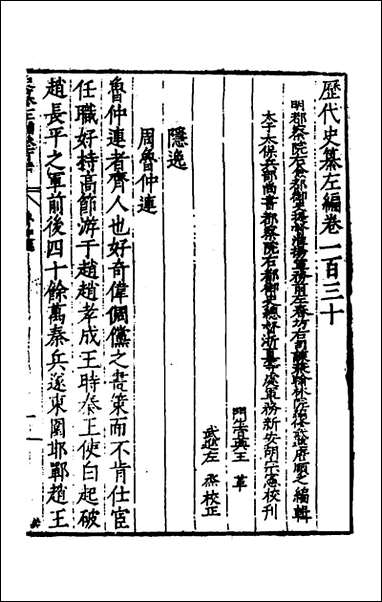 歷代史纂左編卷一百三十
明都察院右僉都御史提督淮揚軍務前左春坊右司諫兼翰林院編修武進唐順之編輯
太子太保兵部尚書都察院右都御史總督浙直等處軍務新安胡宗憲校刊
門生吳興王革
武進左烝校正
隱逸
周魯仲連
魯仲連者齊人也好奇偉俶儻之畫策而不肯仕宦
任職好持高節游于趙趙孝成王時秦王使白起破
趙長平之軍前後四十餘萬秦兵遂東圍邯鄲趙王